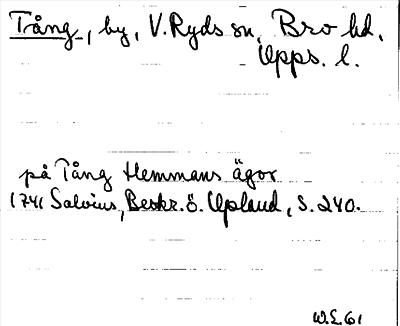 Tång, by, V. Ryds sn, Bro hd,
Upps. l.
på Tång Hemmans ägor
1741 Salvius, Beskr. ö. Upland, S. 240.
W.L. 61